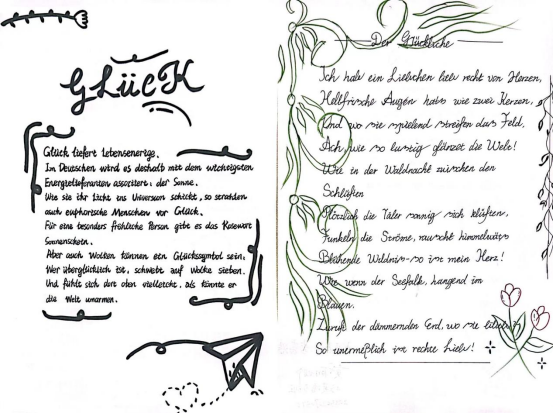 GLücK
Glück liefert Lebensenergie.
Im Deutschen wird es deshalb mit dem wichtigsten
Energielieferanten assoziiert: der Sonne.
Wie sie ihr Licht ins Universum schickt, so strahlen
auch euphorische Menschen vor Glück.
Für eine besonders fröhliche Person gibt es das Kosewort
Sonnenschein.
Aber auch Wolken können ein Glückssymbol sein.
Wer überglücklich ist, schwebt auf Wolke sieben.
Und fühlt sich dort oben vielleicht, als könnte er
die Welt umarmen.
Der Glückliche
Ich hab ein Liebchen lieb recht von Herzen,
Hellfrische Augen hats wie zwei Kerzen,
Und wo sie spielend streifen das Feld,
Ach wie so lustig glänzet die Welt!
Wie in der Waldnacht zwischen den
Schlüften
Plötzlich die Täler sonnig sich klüften,
Funkeln die Ströme, rauscht himmelwärts
Blühende Wildnis-so ist mein Herz!
Wie vom Gebirge ins Meer zu schauen,
Wie wenn der Seefalk, hangend im
Blauen,
Zuruft der dämmernden Erd, wo sie blieb?
So unermeßlich ist rechte Lieb!